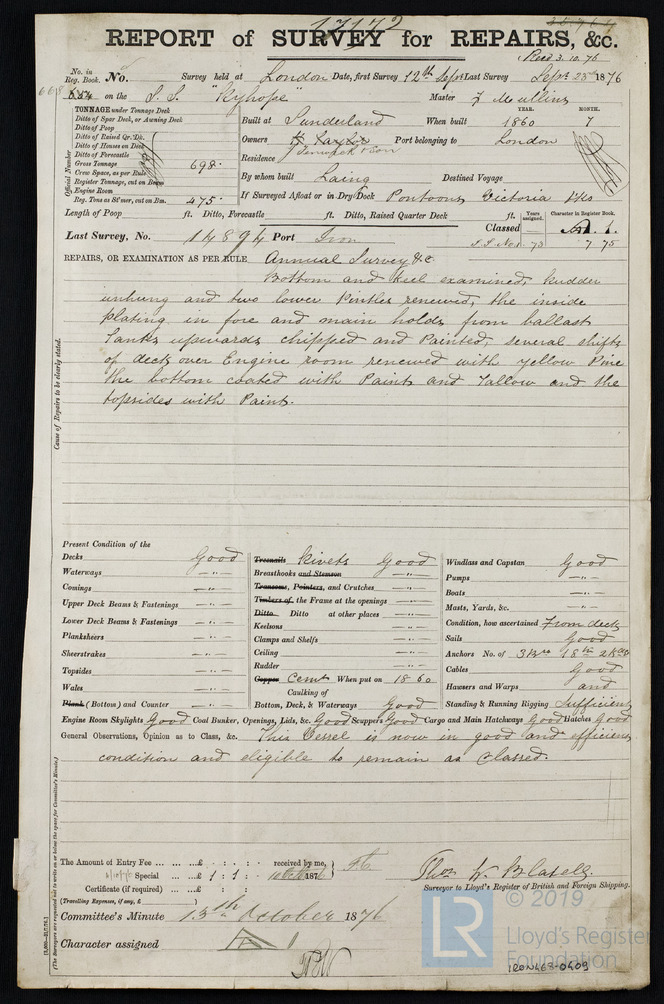 17172
REPORT of SURVEY for REPAIRS, &c.
Recd 3.10.76
No. in Reg. Book. No. Survey held at London Date, first Survey 12th Sept Last Survey Sept 25 1876
on the S.S. "Ryhope" Master J Mullins
TONNAGE under Tonnage Deck
Ditto of Spar Deck, or Awning Deck
Ditto of Poop
Ditto of Raised Qr. Dk.
Ditto of Houses on Deck
Ditto of Forecastle
Gross Tonnage 698.
Crew Space, as per Rule
Register Tonnage, cut on Beam
Engine Room
Reg. Tons as St'mer, cut on Bm. 475.
Official Number
YEAR. MONTH.
Built at Sunderland When built 1860 7
Owners Port belonging to London
Residence
By whom built Laing Destined Voyage
If Surveyed Afloat or in Dry Dock Pontoons Victoria Dks
Length of Poop ft. Ditto, Forecastle ft. Ditto, Raised Quarter Deck ft.
Years assigned. Character in Register Book.
Classed A 1.
7 75
Last Survey, No. 14894 Port Iron
REPAIRS, OR EXAMINATION AS PER RULE Annual Survey &c
Bottom and keel examined, rudder
unhung and two lower Pintles renewed, the inside
plating in fore and main holds from ballast
Tanks upwards chipped and Painted, several shifts
of deck over Engine room renewed with yellow Pine
the bottom coated with Paint and Tallow and the
topsides with Paint.
Cause of Repairs to be clearly stated.
Present Condition of the
Decks Good
Waterways —"—
Comings —"—
Upper Deck Beams & Fastenings —"—
Lower Deck Beams & Fastenings —"—
Planksheers —"—
Sheerstrakes —"—
Topsides —"—
Wales —"—
Plank (Bottom) and Counter —"—
Treenails Rivets Good
Breasthooks and Stemson —"—
Transoms, Pointers, and Crutches —"—
Timbers of the Frame at the openings —"—
Ditto Ditto at other places —"—
Keelsons —"—
Clamps and Shelfs —"—
Ceiling —"—
Rudder —"—
Copper Cemt When put on 1860
Caulking of
Bottom, Deck, & Waterways Good
Windlass and Capstan Good
Pumps —"—
Boats —"—
Masts, Yards, &c. —"—
Condition, how ascertained From deck
Sails Good
Anchors No. of
Cables Good
Hawsers and Warps and
Standing & Running Rigging Sufficient
Engine Room Skylights Good Coal Bunker, Openings, Lids, &c. Good Scuppers Good Cargo and Main Hatchways Good Hatches Good
General Observations, Opinion as to Class, &c. This Vessel is now in good and efficient
condition and eligible to remain as Classed.
The Amount of Entry Fee £ : : received by me,
Special £ 1 : 1 : 187
Certificate (if required) £ : :
(Travelling Expenses, if any, £ )
Surveyor to Lloyd's Register of British and Foreign Shipping.
Committee's Minute 13th October 1876
Character assigned
(The Surveyors are requested not to write on or below the space for Committee's Minute.)
© 2019
LR Lloyd's Register
Foundation
IRON463-0409